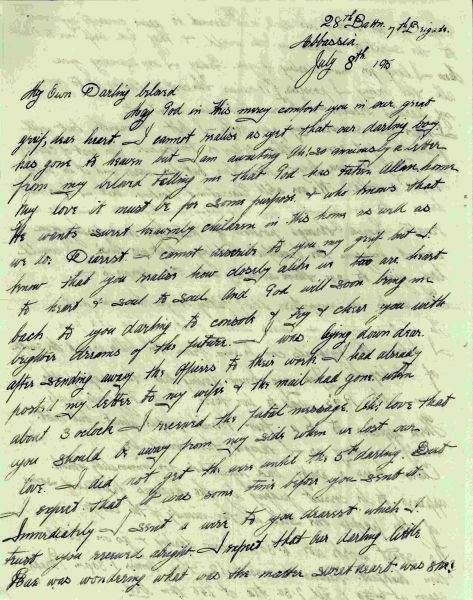 28th Battn. 7th Brigade.
Abbassia.
July 8th 1915
My Own Darling beloved
May God in His mercy comfort you in our great
grief, dear heart. I cannot realise as yet that our darling boy
has gone to heaven but I am awaiting so anxiously a letter
from my beloved telling me that God has taken Allan home
My love it must be for some purpose, & who knows that
He wants sweet heavenly children in His home as well as
we do. Dearest I cannot describe to you my grief but I
know that you realise how closely allies us two are heart
to heart & soul to soul. And God will soon bring me
back to you darling to console & try & cheer you with
brighter dreams of the future. I was lying down dear
after sending away the officers to their work I had already
posted my letter to my wifie & the mail had gone when
about 3 oclock I received the fatal message. Ah, love that
you should be away from my side when we lost our
love. I did not get the wire until the 5th darling. But
I expect that it was some time before you sent it.
Immediately I sent a wire to you dearest which I
trust you received alright I expect that our darling little
was wondering what was the matter sweetheart was she?